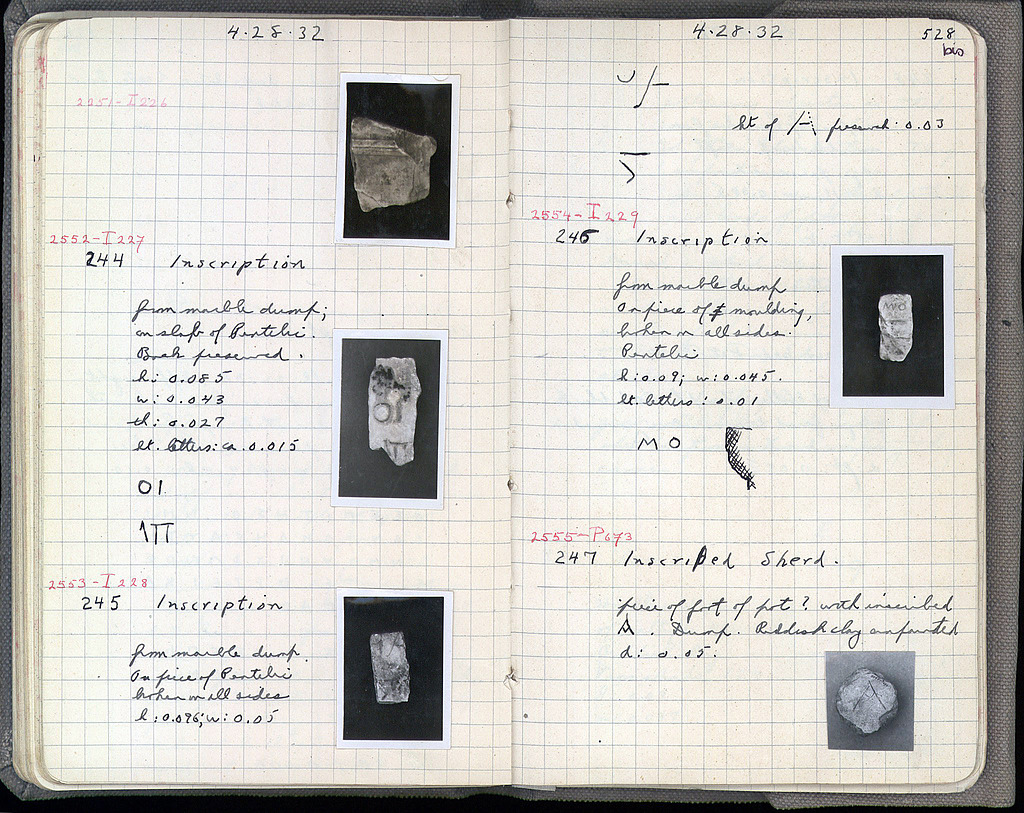 4·28·32
2251-I 226
2552-I 227
244 Inscription
from marble dump;
on slab of Pentelic.
Back preserved.
h: 0.085
w: 0.043
th: 0.027
ht. letters: ca. 0.015
OI
ΙΠ
2553-I 228
245 Inscription
from marble dump.
On piece of Pentelic
broken on all sides
h: 0.096; w: 0.05
4·28·32
528
bis
ht of preserved: 0.03
2554-I 229
246 Inscription
from marble dump
On piece of moulding,
broken on all sides.
Pentelic
h: 0.09; w: 0.045.
ht. letters: 0.01
M O
2555-P 673
247 Inscribed Sherd.
piece of foot of pot? with inscribed
A. Dump. Reddish clay unpainted
d: 0.05.